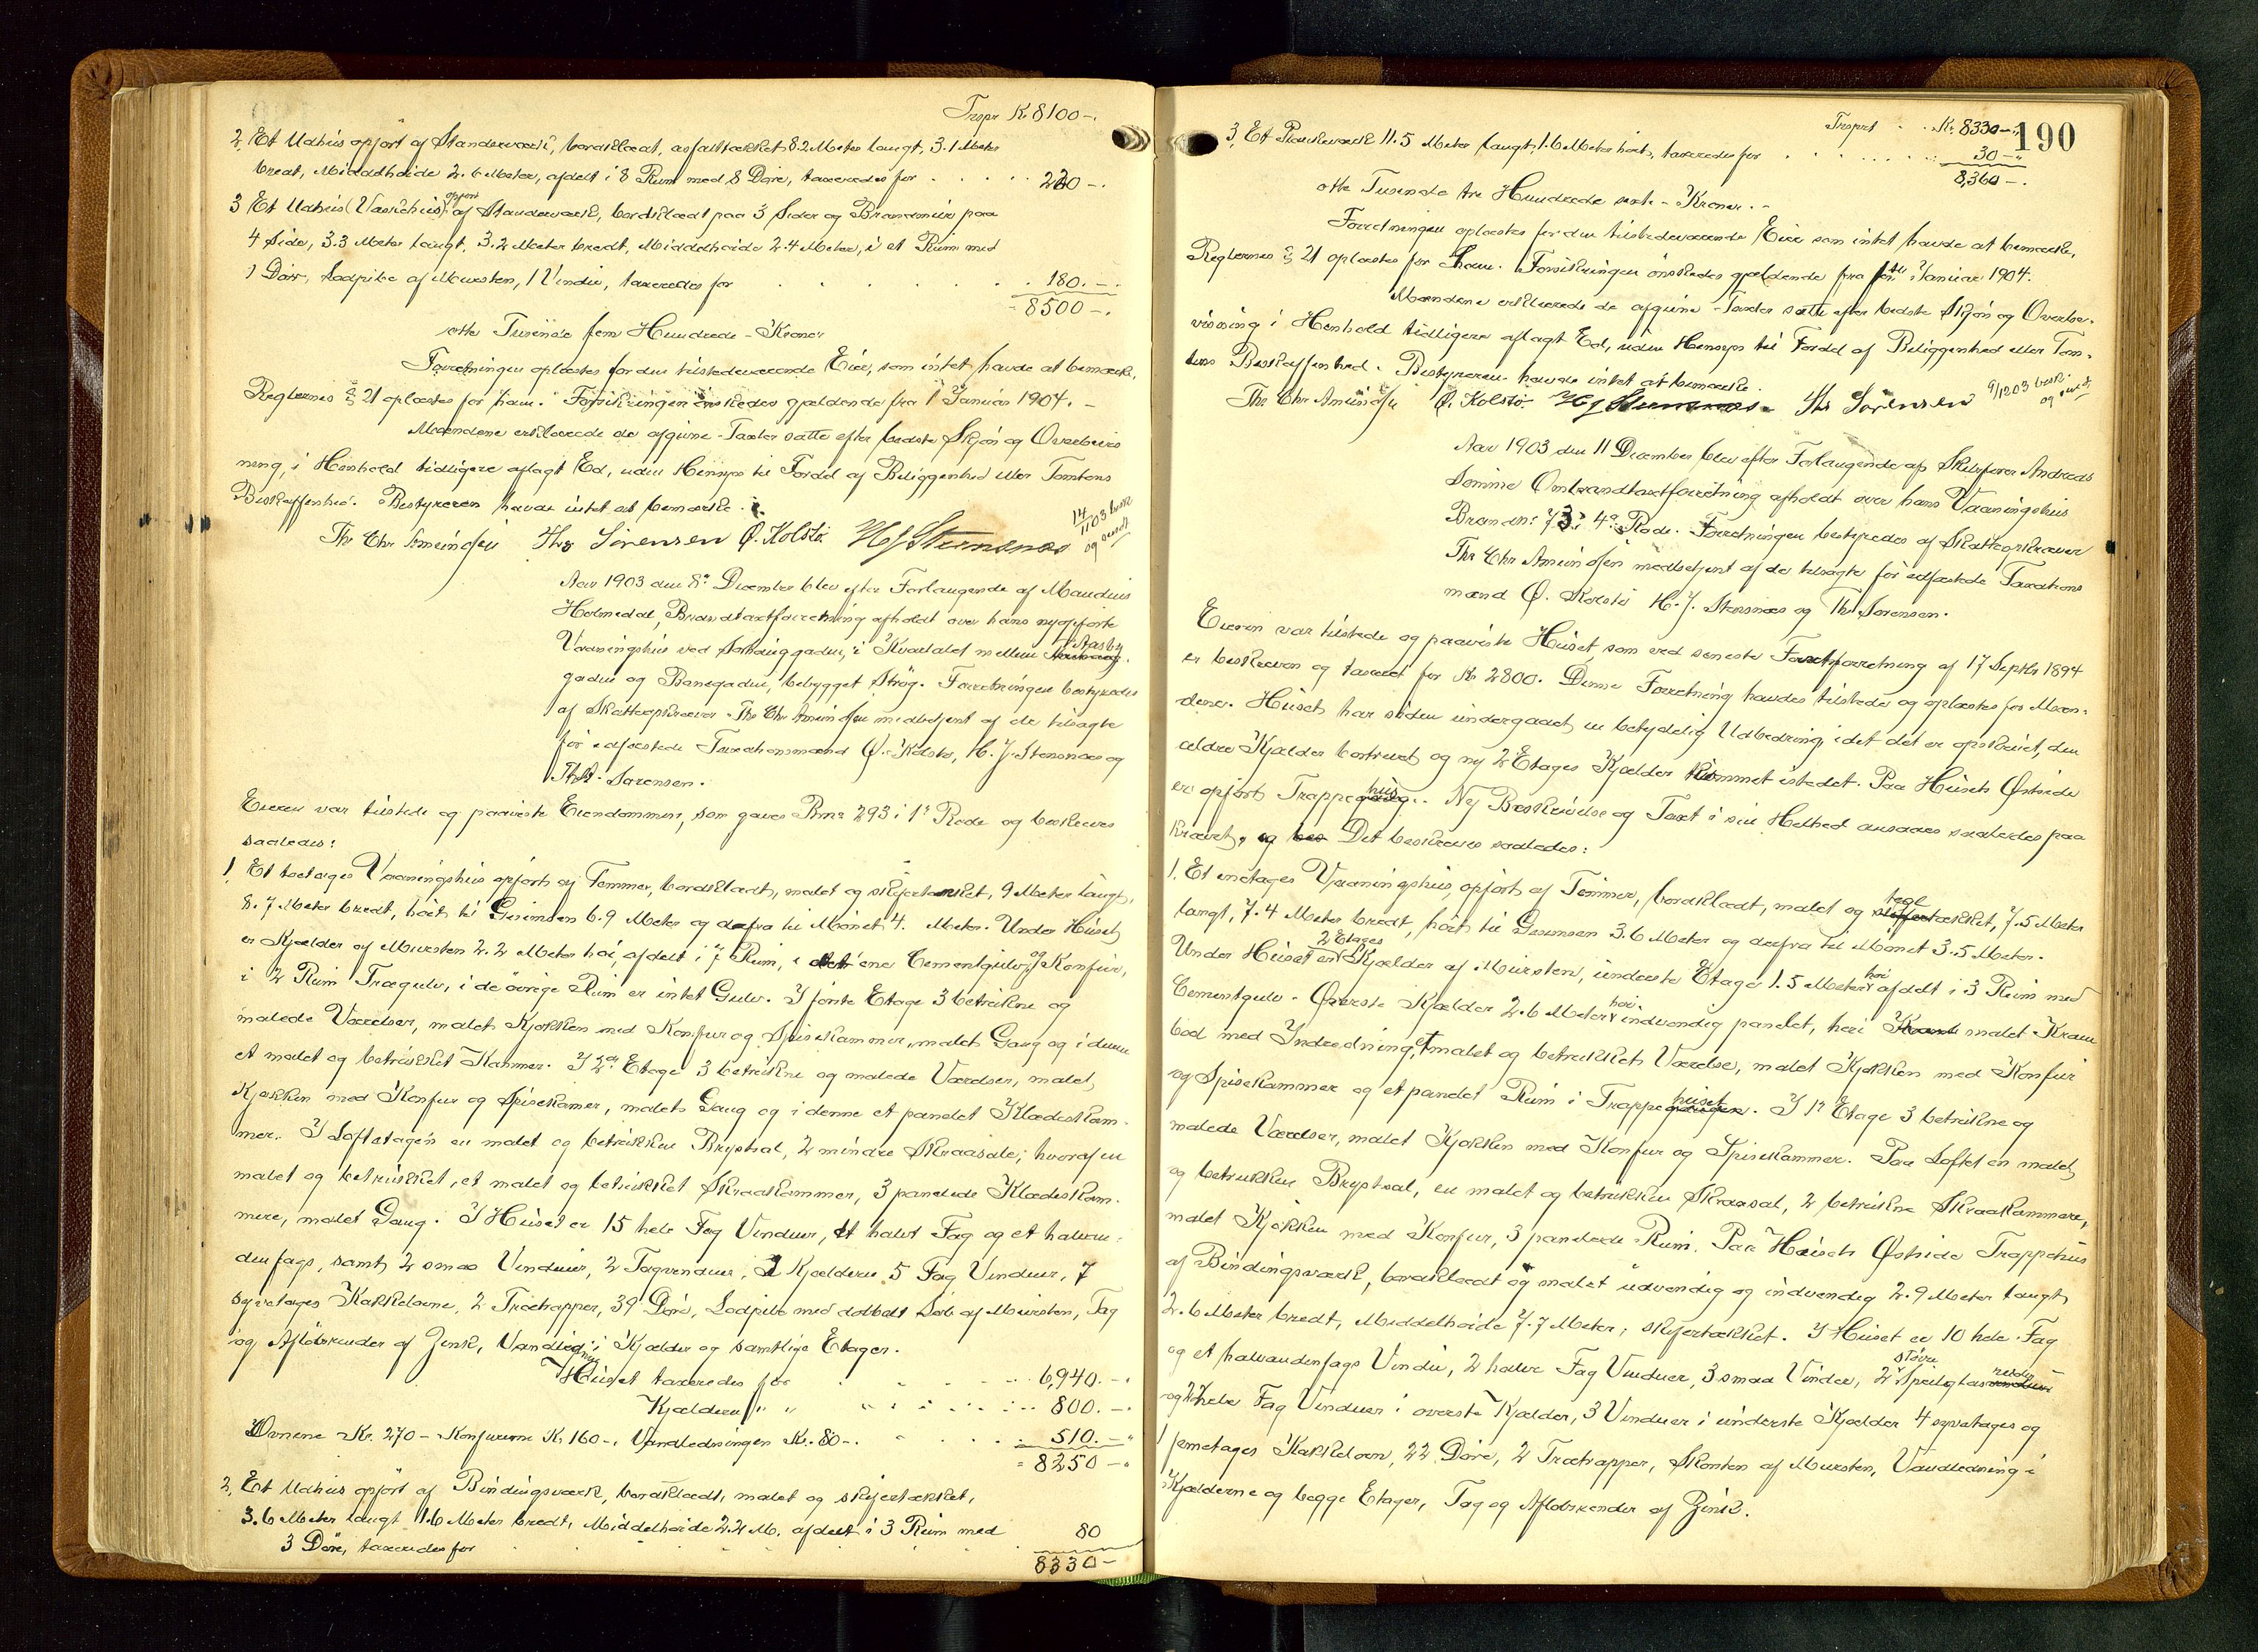 Transp K. 8100 -.
2, Et Udhus opfört af Standerværk, bordklædt, asfalttækket 8.2 Meter langt, 3.1 Meter
bredt, Middelhöide 2.6 Meter, afdelt i 8 Rum med 8 Döre, taxeredes for . . . . . 220 -.
3 Et Udhus (Vaskehus) opfört af Standerværk, bordklædt paa 3 Sider og Brandmur paa
4 Side, 3.3 Meter langt, 3.2 Meter bredt, Middelhöide 2.4 Meter, i et Rum med
1 Dör, Lodpibe af Mursten, 1 Vindu, taxeredes for . . . . . . 180. -.
8500 -.
otte Tusinde fem Hundrede - Kroner
Forretningen oplæstes for den tilstedeværende Eier, som intet havde at bemærke,
Reglernes § 21 oplæstes for ham. Forsikringen önskedes gjældende fra 1 Januar 1904. -
Mændene erklærede de afgivne Taxter satte efter bedste Skjön og Overbevis
ning, i Henhold tidligere aflagt Ed, uden Hensyn til Fordel af Beliggenhed eller Tomtens
Beskaffenhed. Bestyreren havde intet at bemærke.
Ths Chr Amundsen Ths Sörensen Ø. Kolstö H J Stensnæs 14/11 03 besk og sendt
Aar 1903 den 8de December blev efter Forlangende af Maudius
Holmedal, Brandtaxtforretning afholdt over hans nyopförte
Vaaningshus ved Solvanggaden, i Kvartalet mellem Aasby
gaden og Banegaden, bebygget Strög. Forretningen bestyredes
af Skatteopkræver Ths Chr Amundsen medbetjent af de tilsagte
for edfæstede Taxationsmænd Ø. Kolstö, H. J. Stensnæs og
Ths Sörensen.
Eieren var tilstede og paaviste Eiendommen, som gaves Bn: 293 i 1ste Rode og beskrives
saaledes:
1, Et toetages Vaaningshus opfört af Tømmer, bordklædt, malet og skifertækket, 9 Meter langt,
8.7 Meter bredt, höit til Gesimsen 6.9 Meter og derfra til Mönet 4. Meter. Under Huset
er Kjælder af Mursten 2.2 Meter höi, afdelt i 7 Rum, i det ene Cementgulv og Komfur,
i 2 Rum Trægulv, i de övrige Rum er intet Gulv. I förste Etage 3 betrukne og
malede Værelser, malet Kjökken med Komfur og Spisekammer, malet Gang og i denne
et malet og betrukket Kammer. I 2den Etage 3 betrukne og malede Værelser, malet
Kjökken med Komfur og Spisekammer, malet Gang og i denne et panelet Klædeskam-
mer. I Loftetagen en malet og betrukken Brystsal, 2 mindre Skraasale, hvoraf en
malet og betrukket, et malet og betrukket Skraakammer, 3 panelede Klædeskam-
mere, malet Gang. I Huset er 15 hele Fag Vinduer, et halvt Fag og et halvan-
denfags, samt 2 smaa Vinduer, 2 Tagvinduer, I Kjælderen 5 Fag Vinduer, 7
syvetages Kakkelovne, 2 Trætrapper, 39 Döre, Lodpibe med dobbelt Löb af Mursten, Tag
og Aflöbsrender af Zink, Vandledning i Kjælder og samtlige Etager.
Huset taxeredes for . . . . . 6,940. -.
Kjælderen " " " . . . . . 800. -.
Ovnene Kr. 270 - Komfurerne K. 160 -. Vandledningen K. 80 -. . . . 510. -
8250 -.
2, Et Udhus opfört af Bindingsværk, bordklædt, malet og skifertækket,
3.6 Meter langt 1.6 Meter bredt, Middelhöide 2.2 M. afdelt i 3 Rum med
3 Döre, taxeredes for . . . . . 80
8330 -
Transpt . . K. 8330 -. 190
3, Et Plankeværk 11.5 Meter langt, 1.6 Meter höit, taxeredes for . . . . . . . 30 -.
8,360 -.
otte Tusinde tre Hundrede sexti - Kroner. -
Forretningen oplæstes for den tilstedeværende Eier som intet havde at bemærke,
Reglernes § 21 oplæstes for ham. Forsikringen önskedes gjældende fra 1ste Januar 1904.
Mændene erklærede de afgivne Taxter satte efter bedste Skjön og Overbe-
visning i Henhold tidligere aflagt Ed, uden Hensyn til Fordel af Beliggenhed eller Tom-
tens Beskaffenhed. Bestyreren havde intet at bemærke.
Ths Chr Amundsen Ø. Kolstö H J Stensnæs Ths Sörensen 9/12 03 besk. og sendt
Aar 1903 den 11 December blev efter Forlangende af Skibsförer Andreas
Sömme Ombrandtaxtforretning afholdt over hans Vaaningshus
Brandn: 73 i 4de Rode. Forretningen bestyredes af Skatteopkræver
Ths Chr Amundsen medbetjent af de tilsagte for edfæstede Taxations
mænd Ø. Kolstö H. J. Stensnæs og Ths Sörensen.
Eieren var tilstede og paaviste Huset som ved seneste Taxtforretning af 17 Septbr 1894
er beskreven og taxeret for Kr 2800. Denne Forretning havdes tilstede og oplæstes for Mæn-
dene. Huset har siden undergaaet en betydelig Udbedring, idet det er opskruet, den
ældre Kjælder bortrevet og ny 2 Etages Kjælder kommet istedet. Paa Husets Østside
er opfört Trappehus. Ny Beskrivelse og Taxt i sin Helhed ansaaes saaledes paa
krævet, og bes Det beskrives saaledes:
1, Et enetages Vaaningshus, opfört af Tömmer, bordklædt, malet og tegltækket, 7.5 Meter
langt, 7.4 Meter bredt, höit til Gesimsen 3.6 Meter og derfra til Mönet 3.5 Meter.
Under Huset er 2 Etages Kjælder af Mursten, underste Etage 1.5 Meter höi afdelt i 3 Rum med
Cementgulv. Øverste Kjælder 2.6 Meter höi indvendig panelet, heri malet Kram
bod med Indredning, et malet og betrukket Værelse, malet Kjökken med Komfur
og Spisekammer og et panelet Rum i Trappehuset. I 1ste Etage 3 betrukne og
malede Værelser, malet Kjökken med Komfur og Spisekammer. Paa Loftet en malet
og betrukken Brystsal, en malet og betrukken Skraasal, 2 betrukne Skraakammere,
malet Kjökken med Komfur, 3 panelede Rum. Paa Husets Østside Trappehus
af Bindingsværk, bordklædt og malet udvendig og indvendig 2.9 Meter langt
2.6 Meter bredt, Middelhöide 7.7 Meter, skifertækket. I Huset er 10 hele Fag
og et halvandenfags Vindu, 2 halve Fag Vinduer, 3 smaa Vinder, 2 större Speilglasruder
og 2 hele Fag Vinduer i överste Kjælder, 3 Vinduer i underste Kjælder 4 syvetages og
1 femetages Kakkelovn, 22 Döre, 2 Trætrapper, Skorsten af Mursten, Vandledning i
Kjælderne og begge Etager, Tag og Aflöbsrender af Zink.